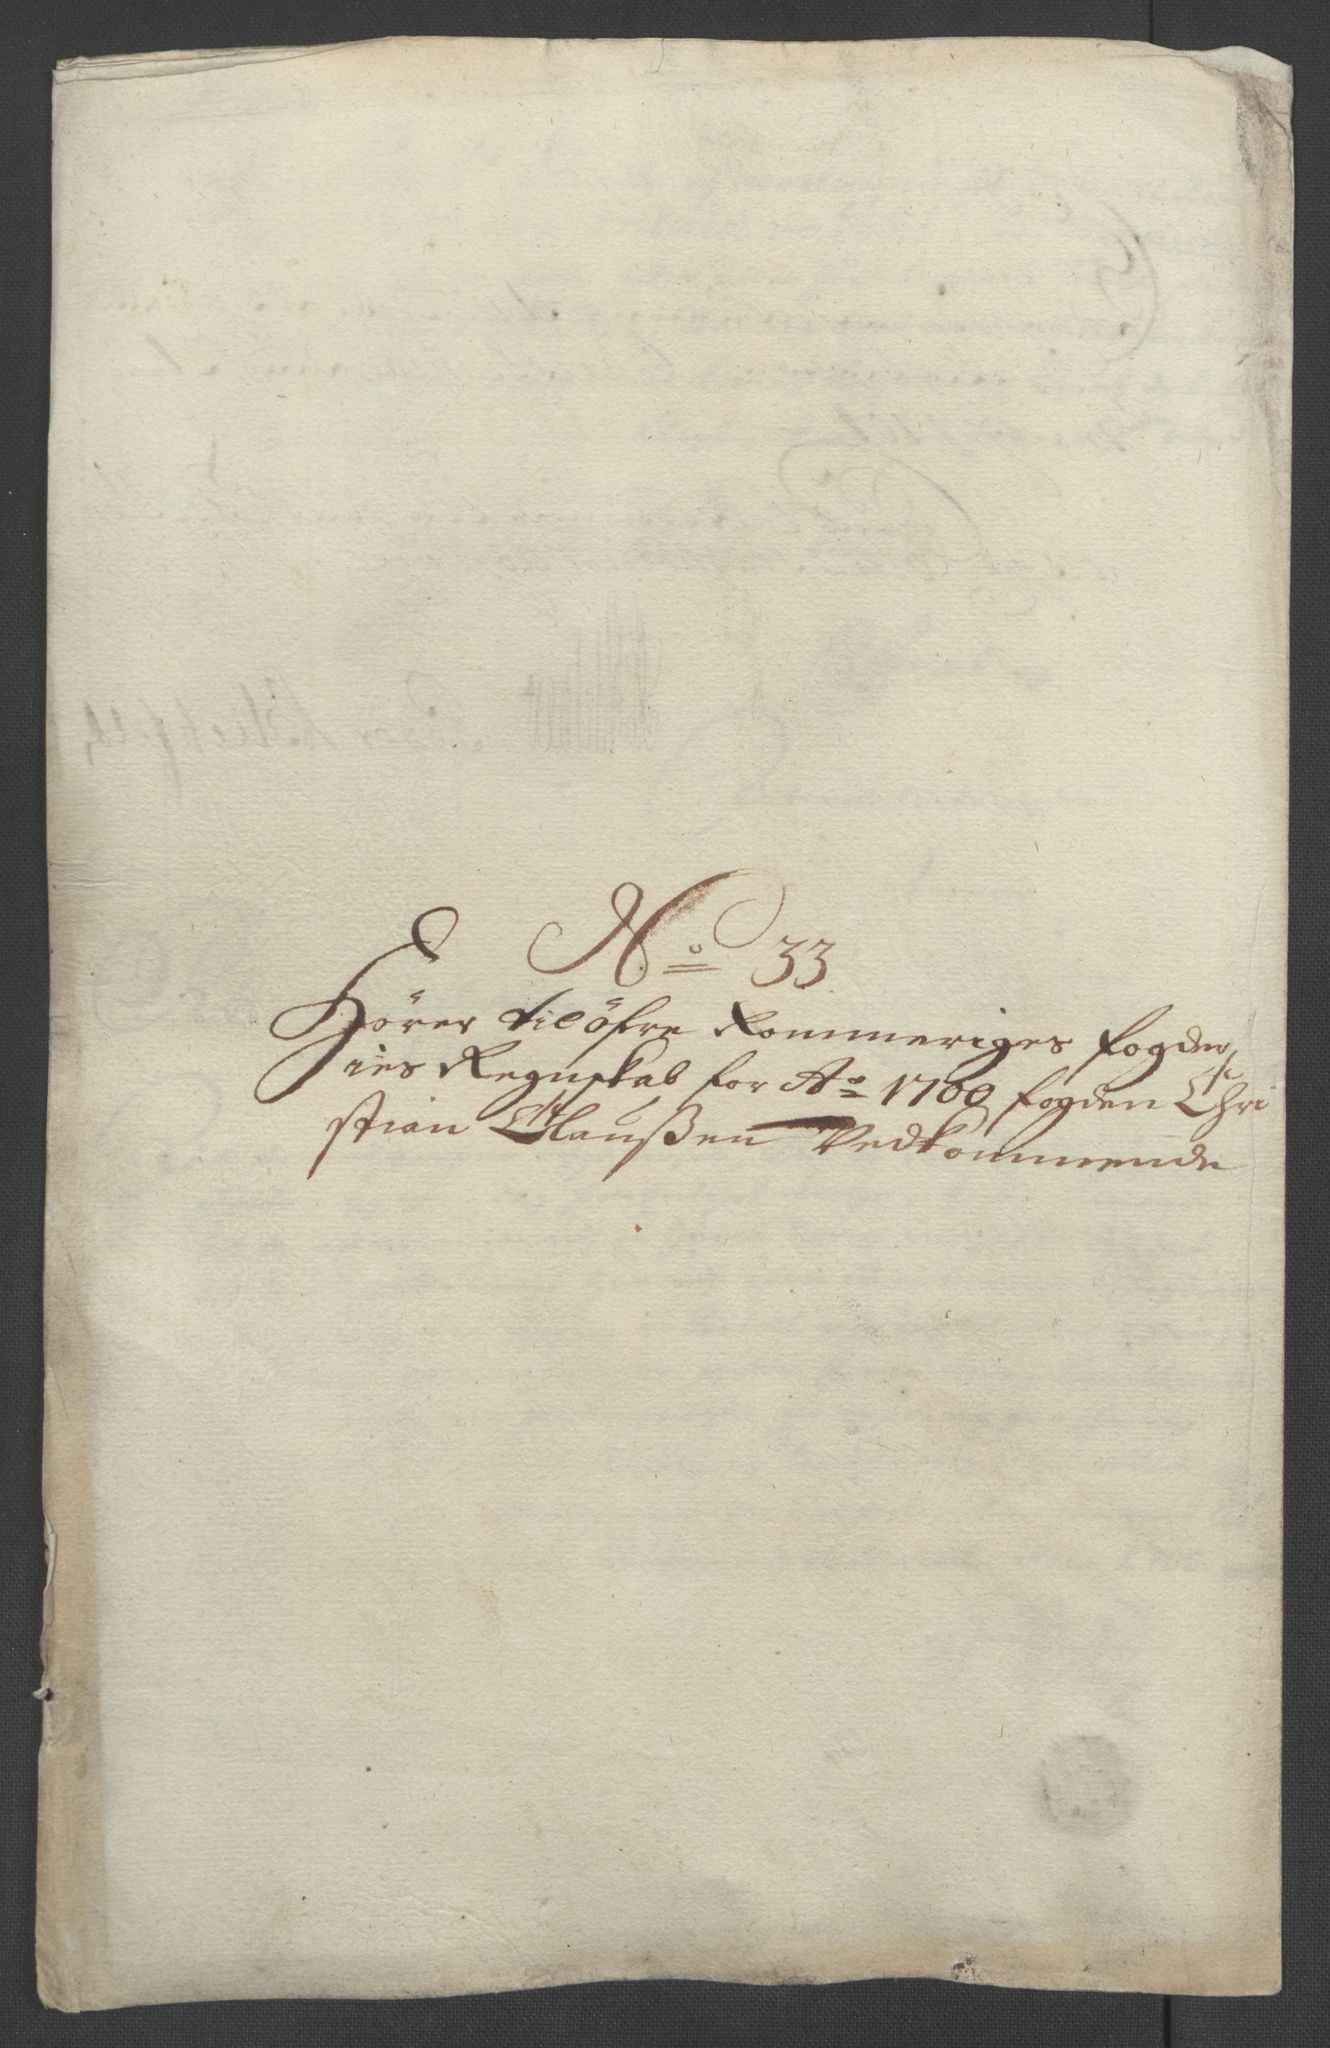 No 33
Hörer til öfre Rommeriges fogder,
ies Regnskab for Ao 1700 fogden Chri
stian Claußen Vedkommende